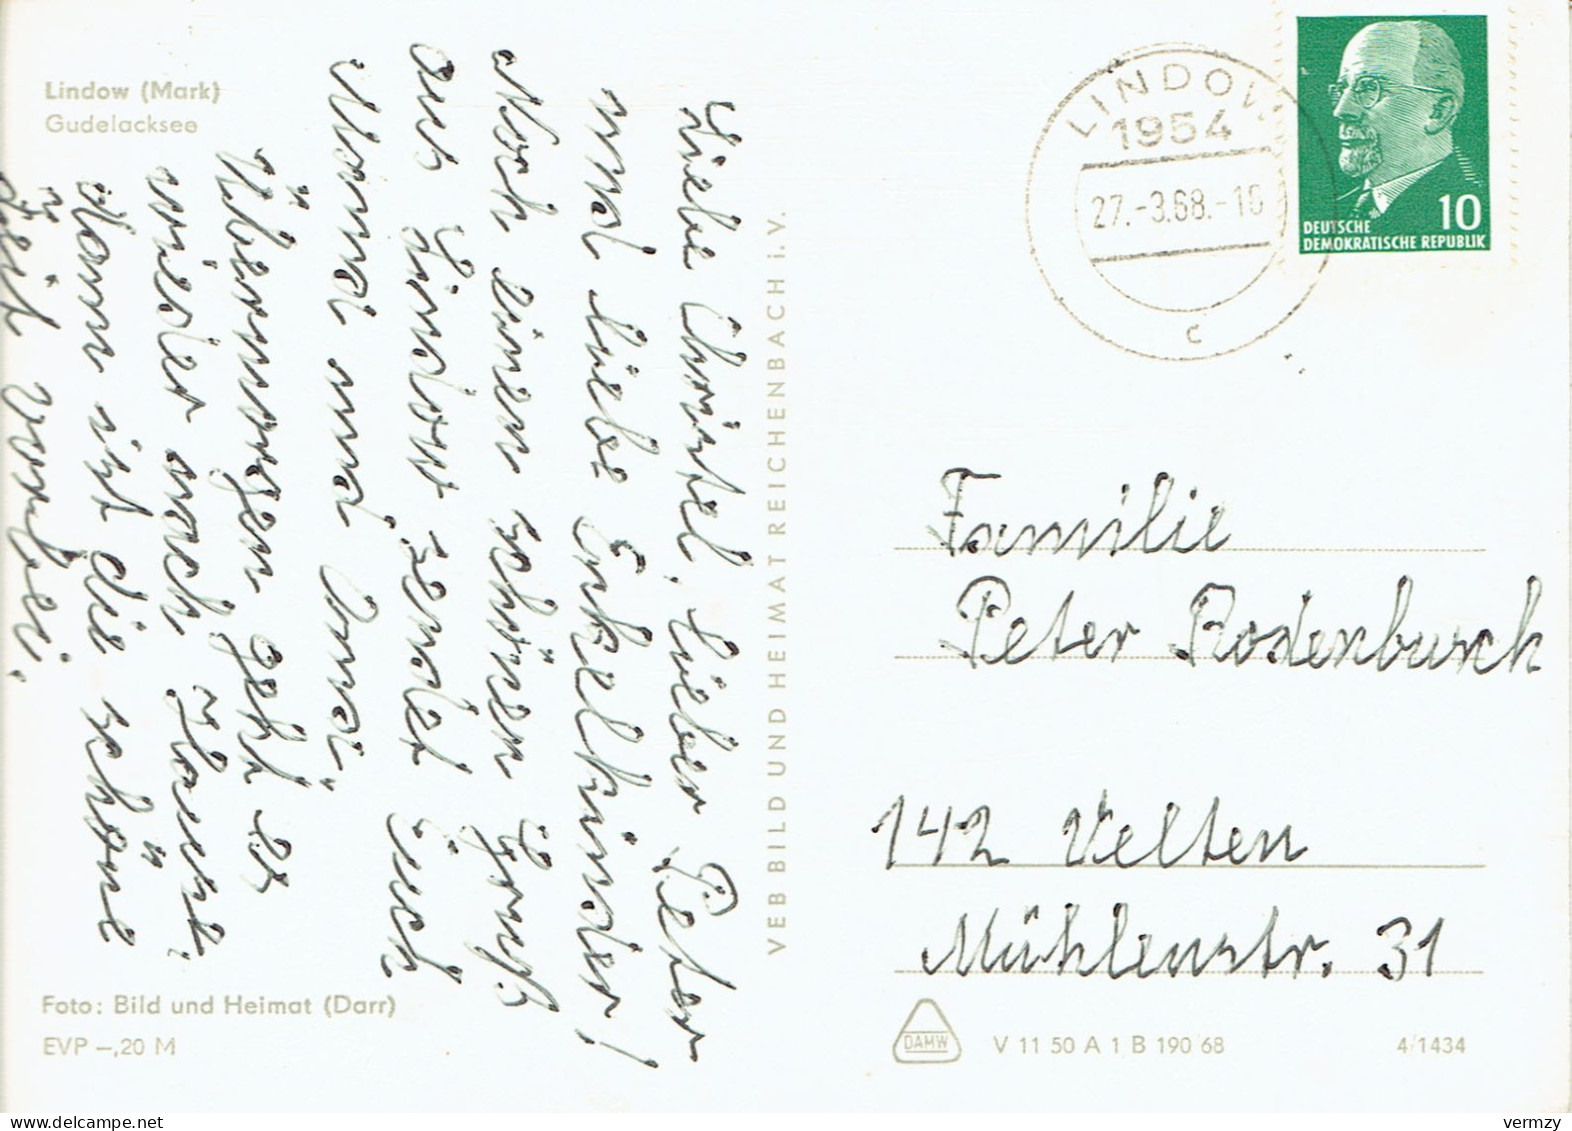 Lindow (Mark)
Gudelacksee
Liebe Christel, lieber Peter
und liebe Enkelkinder!
Noch einen schönen Gruß
aus Lindow sendet Euch
"Mama und Oma"
Übermorgen geht es
wieder nach Hause.
Dann ist die schöne
Zeit vorbei.
Foto: Bild und Heimat (Darr)
EVP –,20 M
VEB BILD UND HEIMAT REICHENBACH i. V.
LINDOW
1954
27.-3.68.-10
c
10
DEUTSCHE
DEMOKRATISCHE REPUBLIK
Familie
Peter Rodenbusch
142 Velten
Mühlenstr. 31
DAMW
V 11 50 A 1 B 190 68
4/1434
vermzy